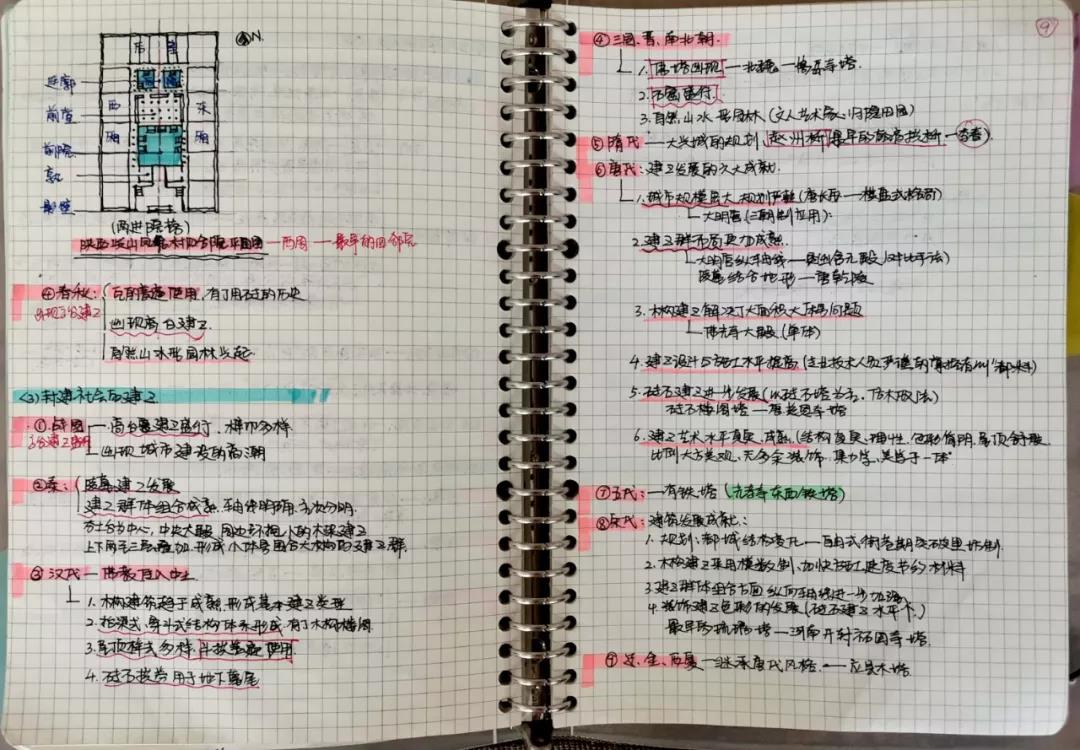 N.
后 室
过廊
前堂
西 东
厢 厢
前院
塾
影壁
(两进院落)
陕西岐山凤雏村四合院平面图 — 西周 — 最早的四合院
④春秋: 瓦的普遍使用, 有了用砖的历史
出现高台建
出现高台建
自然山水形园林兴起
<3) 封建社会的建
①战国 — 高台建盛行, 样巾多样
高台建盛
出现城市建设的高潮
②秦: 陵墓建发展
建群体组合成熟, 轴线明确, 主次分明
夯土台为中心, 中央大殿, 周边环抱小的木架建
上下两至三层叠加, 形成小体房围合大木构的建群
③汉代 — 佛教传入中土
1. 木构建筑趋于成熟, 形成基本建类型
2. 抬梁式、穿斗式结构体系形成, 有了木构楼阁
3. 屋顶样式多样, 斗拱普遍使用.
4. 砖石拱券用于地下墓
⑨
④三国、晋、南北朝.
1. 佛塔出现 — 北魏 — 嵩岳寺塔.
2. 石窟盛行.
3. 自然山水形园林 (文人艺术家、归隐田园)
⑤隋代 — 大兴城的规划 赵州桥 最早的敞肩拱桥 — 李春).
⑥唐代: 建发展的六大成就.
1. 城市规模宏大, 规划严整 (唐长安 — 棋盘式格局)
大明宫 (三朝制应用).
2. 建群布局更加成熟.
大明宫纵轴线 — 突出含元殿 (对比手法)
陵墓结合地形 — 唐乾陵
3. 木构建解决了大面积大问题
佛光寺大殿 (单体)
4. 建设计与施工水平提高 (专业技术人员严谨的 "都料)
5. 砖石建进一步发展 (以砖石塔为主, 仿木做法)
砖石楼阁塔 — 塔
6. 建艺术水平真实, 成熟. (结构真实、理性, 色彩简明, 屋顶舒缓
比例大方美观、无多余装饰, 集力学、美学于一体
⑦五代: — 有铁塔 (光孝寺东西铁塔)
⑧宋代: 建筑发展成就:
1. 规划: 都城结构变化 — 自由式街巷制突破里坊制
2. 木构建采用模数制, 加快施工速度节约材料
3. 建群体组合方面纵向轴线进一步加强
4. 装饰建色彩的发展 (砖石建水平下.)
最早的琉璃塔 — 河南开封祐国寺塔.
⑨辽、金、西夏 — 继承唐代风格. — 应县木塔.